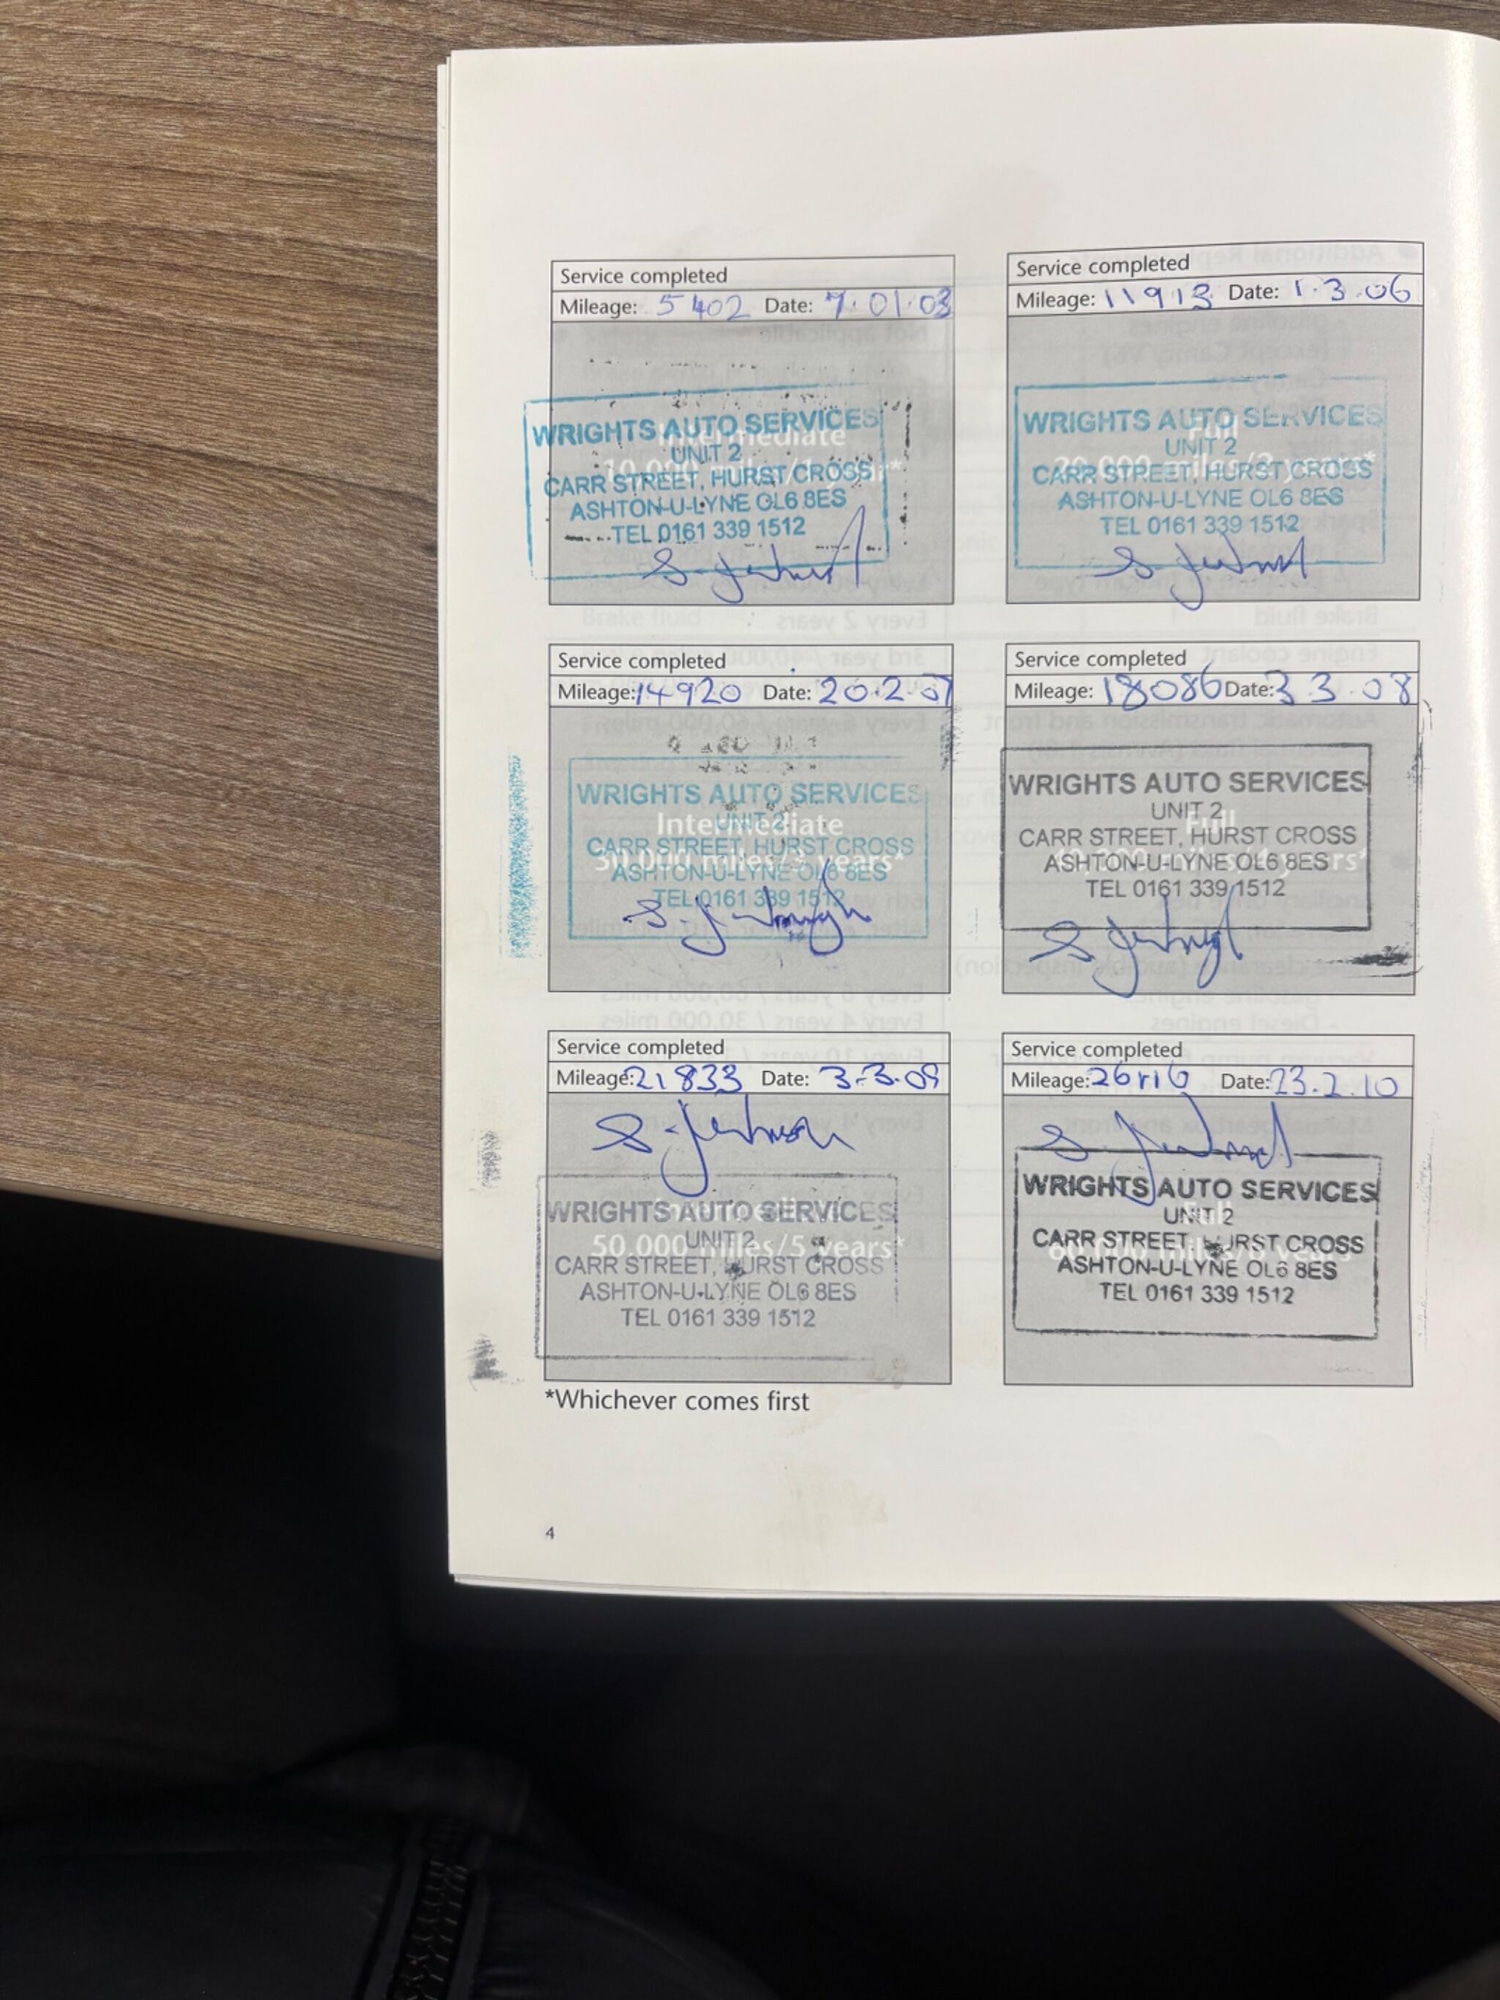 Service completed
Mileage: 5402 Date: 7.01.03
Intermediate
10,000 miles/1 year*
WRIGHTS AUTO SERVICES
UNIT 2
CARR STREET, HURST CROSS
ASHTON-U-LYNE OL6 8ES
TEL 0161 339 1512
Service completed
Mileage: 11913 Date: 1.3.06
Full
20,000 miles/2 years*
WRIGHTS AUTO SERVICES
UNIT 2
CARR STREET, HURST CROSS
ASHTON-U-LYNE OL6 8ES
TEL 0161 339 1512
Service completed
Mileage: 14920 Date: 20.2.07
Intermediate
30,000 miles/3 years*
WRIGHTS AUTO SERVICES
UNIT 2
CARR STREET, HURST CROSS
ASHTON-U-LYNE OL6 8ES
TEL 0161 339 1512
Service completed
Mileage: 18086 Date: 3 3.08
Full
40,000 miles/4 years*
WRIGHTS AUTO SERVICES
UNIT 2
CARR STREET, HURST CROSS
ASHTON-U-LYNE OL6 8ES
TEL 0161 339 1512
Service completed
Mileage: 21833 Date: 3.3.09
Intermediate
50,000 miles/5 years*
WRIGHTS AUTO SERVICES
UNIT 2
CARR STREET, HURST CROSS
ASHTON-U-LYNE OL6 8ES
TEL 0161 339 1512
Service completed
Mileage: Date: 23.2.10
Full
60,000 miles/6 years*
WRIGHTS AUTO SERVICES
UNIT 2
CARR STREET, HURST CROSS
ASHTON-U-LYNE OL6 8ES
TEL 0161 339 1512
*Whichever comes first
4